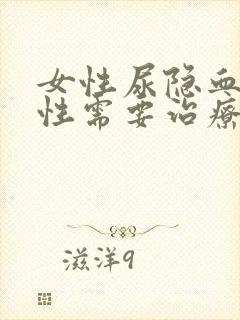 女性尿隐血
性需要治疗
滋洋9